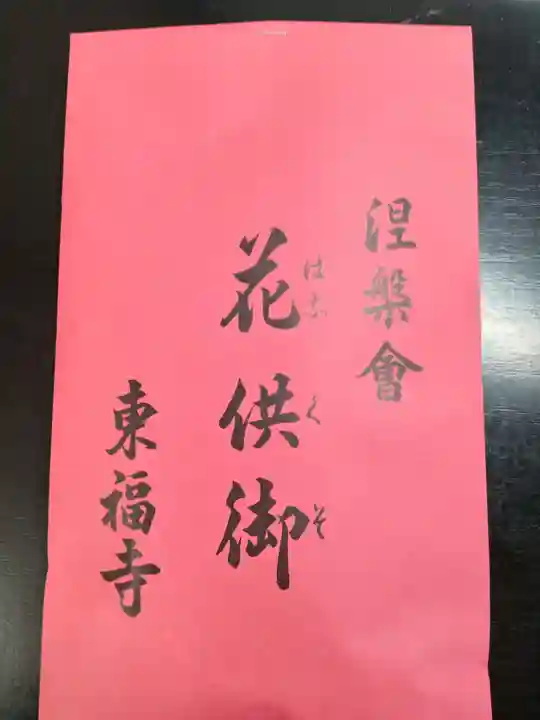 涅槃會
花供御
はなくそ
東福寺